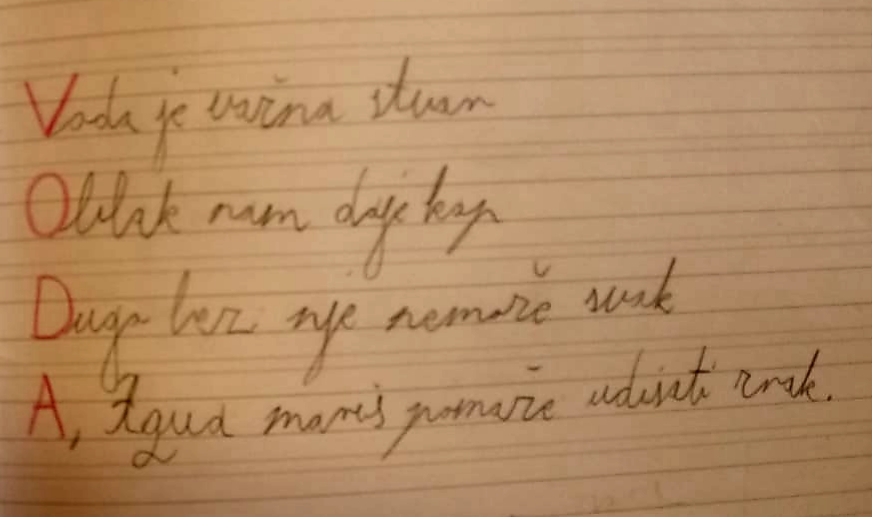 Voda je važna stvar
Oblak nam daje kap
Dugo bez nje nemože svak
A, Aqua maris pomaže udisati zrak.